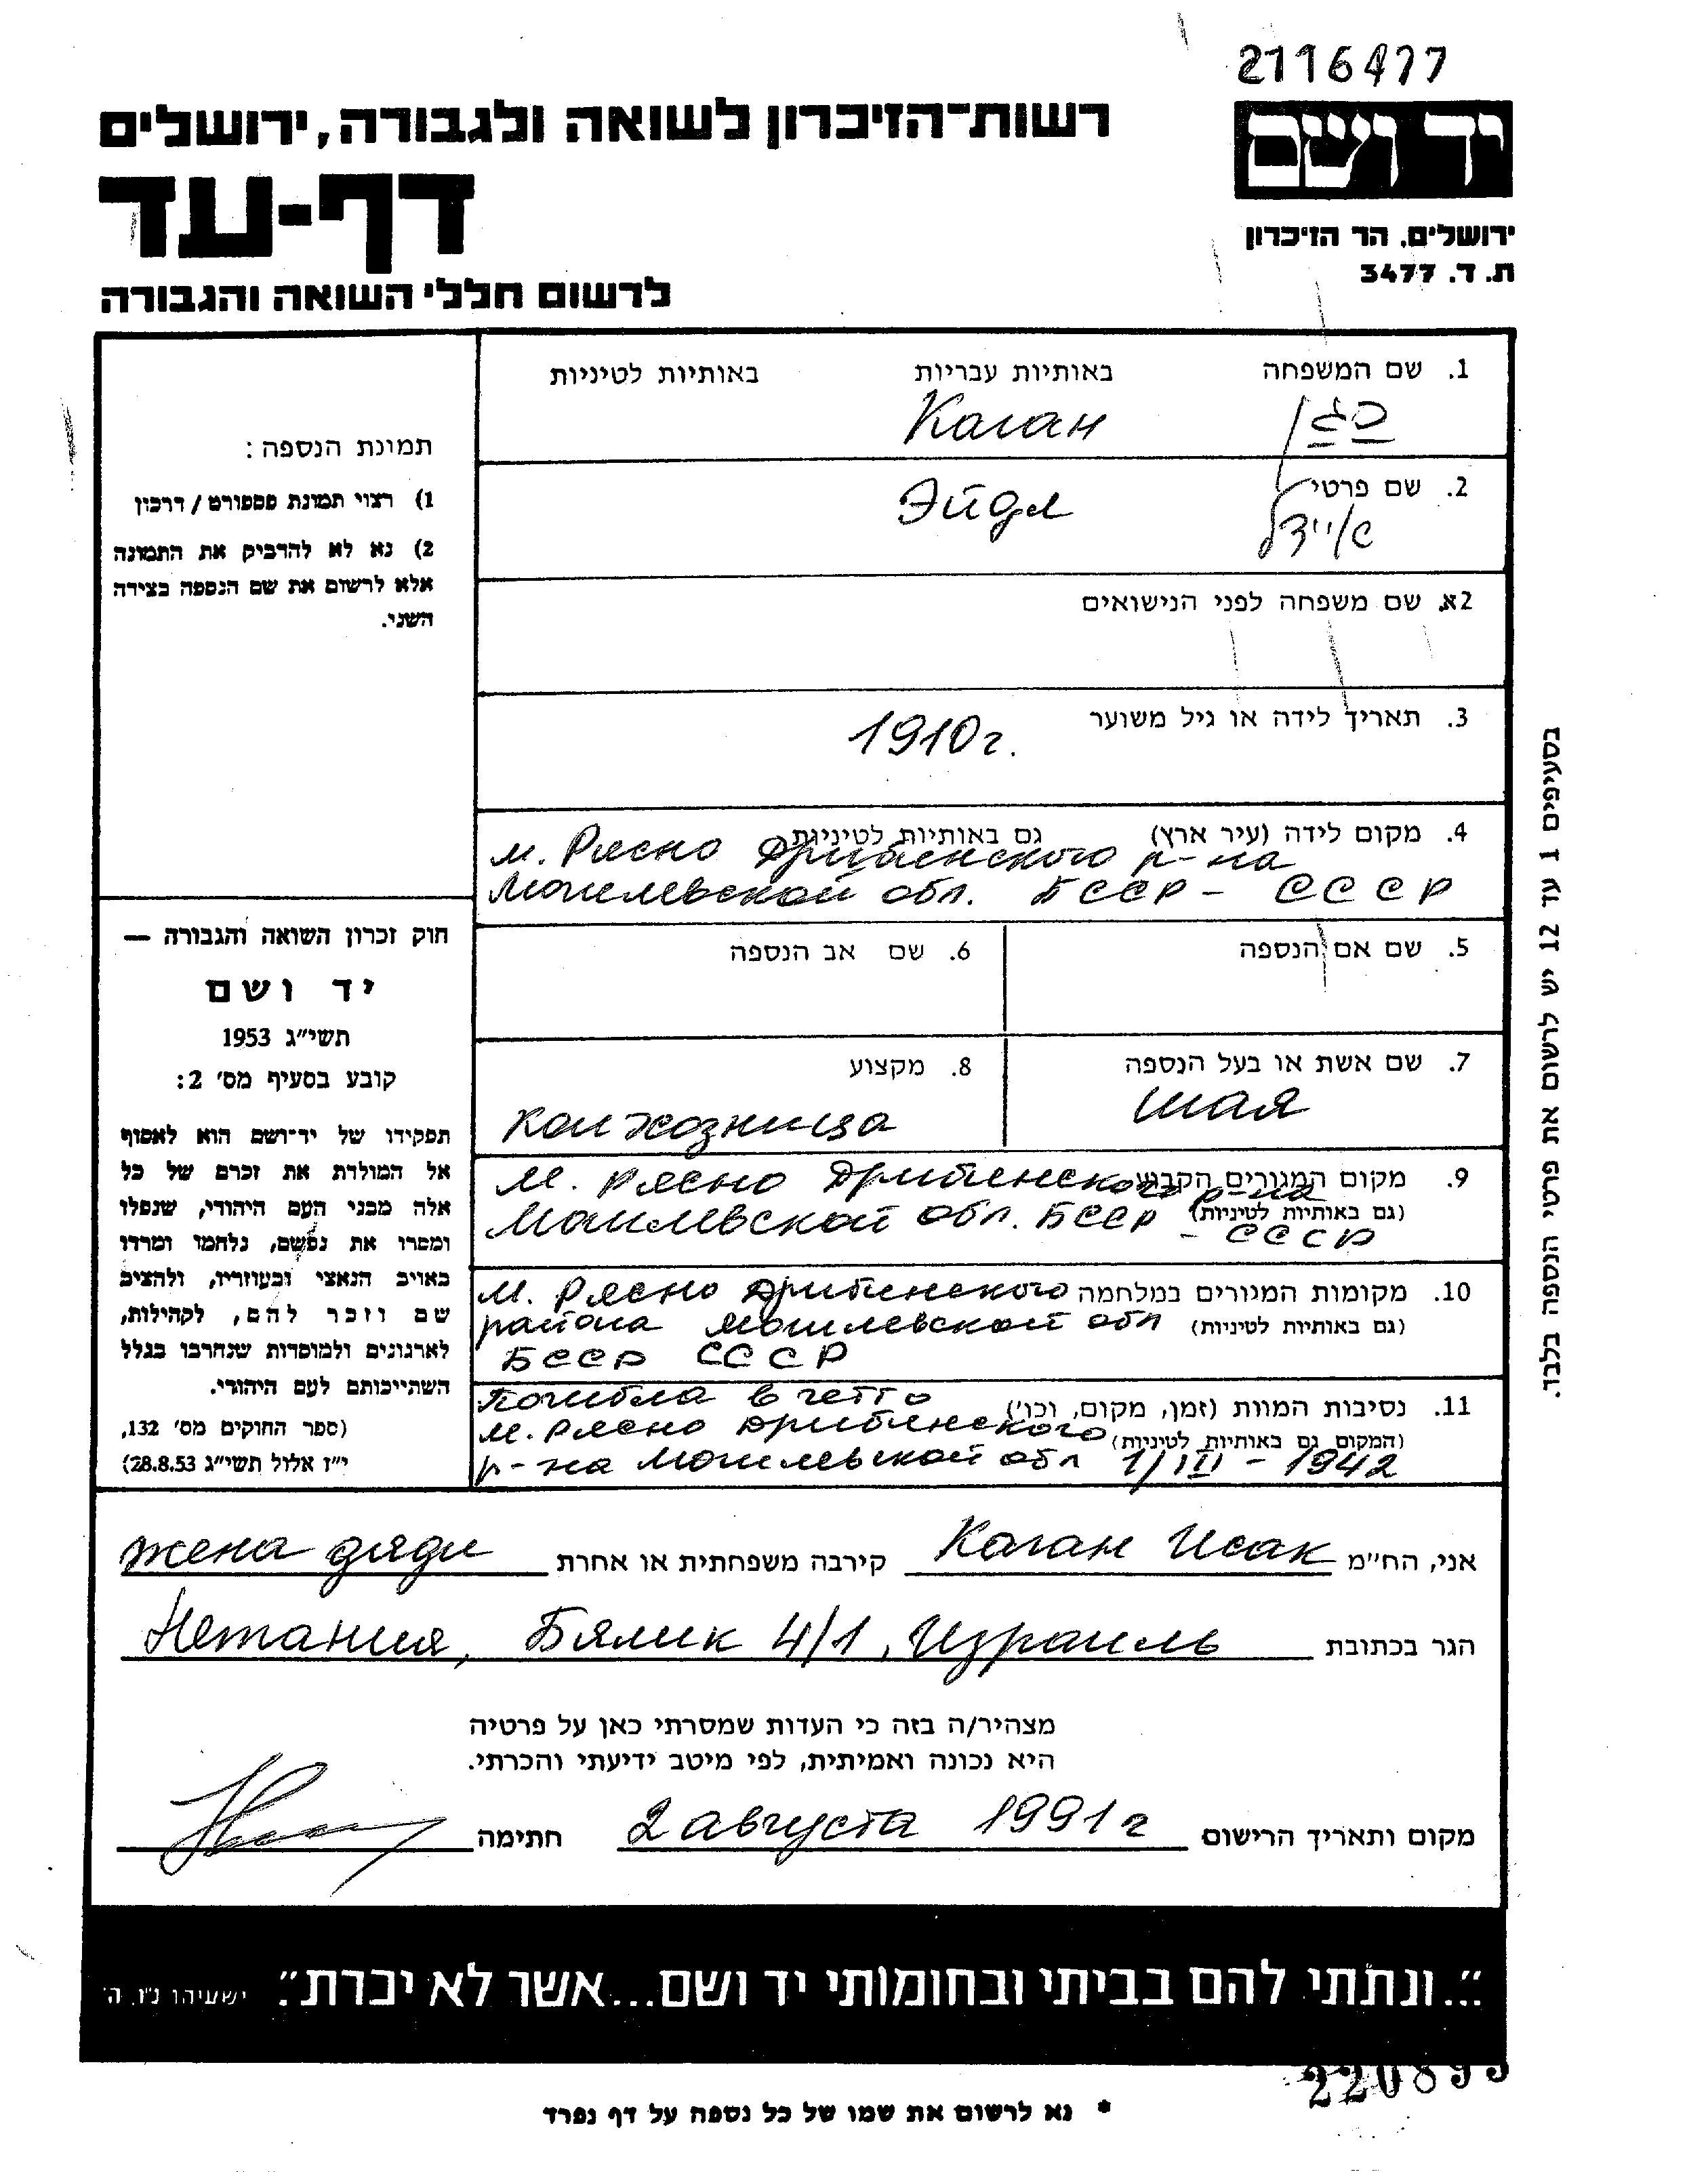 2116477
רשות-הזיכרון לשואה ולגבורה, ירושלים
יד ושם
דף-עד
ירושלים, הר הזיכרון
ת. ד. 3477
לרשום חללי השואה והגבורה
1. שם המשפחה באותיות עבריות באותיות לטיניות
כגן Каган
2. שם פרטי
איידל Эйдл
2א. שם משפחה לפני הנישואים
3. תאריך לידה או גיל משוער
1910г.
4. מקום לידה (עיר ארץ) גם באותיות לטיניות
м. Рясно Дрибенского р-на
Могилевской обл. БССР - СССР
5. שם אם הנספה
6. שם אב הנספה
7. שם אשת או בעל הנספה
Шая
8. מקצוע
колхозница
9. מקום המגורים הקבוע
(גם באותיות לטיניות)
м. Рясно Дрибенского р-на
Могилевской обл. БССР
- СССР
10. מקומות המגורים במלחמה
(גם באותיות לטיניות)
м. Рясно Дрибенского
района Могилевской обл
БССР СССР
11. נסיבות המוות (זמן, מקום, וכו')
(המקום גם באותיות לטיניות)
Погибла в гетто
м. Рясно Дрибенского
р-на Могилевской обл 1/III - 1942
תמונת הנספה:
1) רצוי תמונת פספורט / דרכון
2) נא לא להדביק את התמונה
אלא לרשום את שם הנספה בצידה
השני.
חוק זכרון השואה והגבורה —
יד ושם
תשי"ג 1953
קובע בסעיף מס' 2:
תפקידו של יד-ושם הוא לאסוף
אל המולדת את זכרם של כל
אלה מבני העם היהודי, שנפלו
ומסרו את נפשם, נלחמו ומרדו
באויב הנאצי ובעוזריו, ולהציב
שם וזכר להם, לקהילות,
לארגונים ולמוסדות שנחרבו בגלל
השתייכותם לעם היהודי.
(ספר החוקים מס' 132,
י"ז אלול תשי"ג 28.8.53)
בסעיפים 1 עד 12 יש לרשום את פרטי הנספה בלבד.
אני, הח"מ Каган Исак קירבה משפחתית או אחרת жена дяди
הגר בכתובת Нетания, Бялик 4/1, Израиль
מצהיר/ה בזה כי העדות שמסרתי כאן על פרטיה
היא נכונה ואמיתית, לפי מיטב ידיעתי והכרתי.
מקום ותאריך הרישום 2 августа 1991г חתימה
"...ונתתי להם בביתי ובחומותי יד ושם...אשר לא יכרת". ישעיהו נ"ו, ה'
220895
* נא לרשום את שמו של כל נספה על דף נפרד